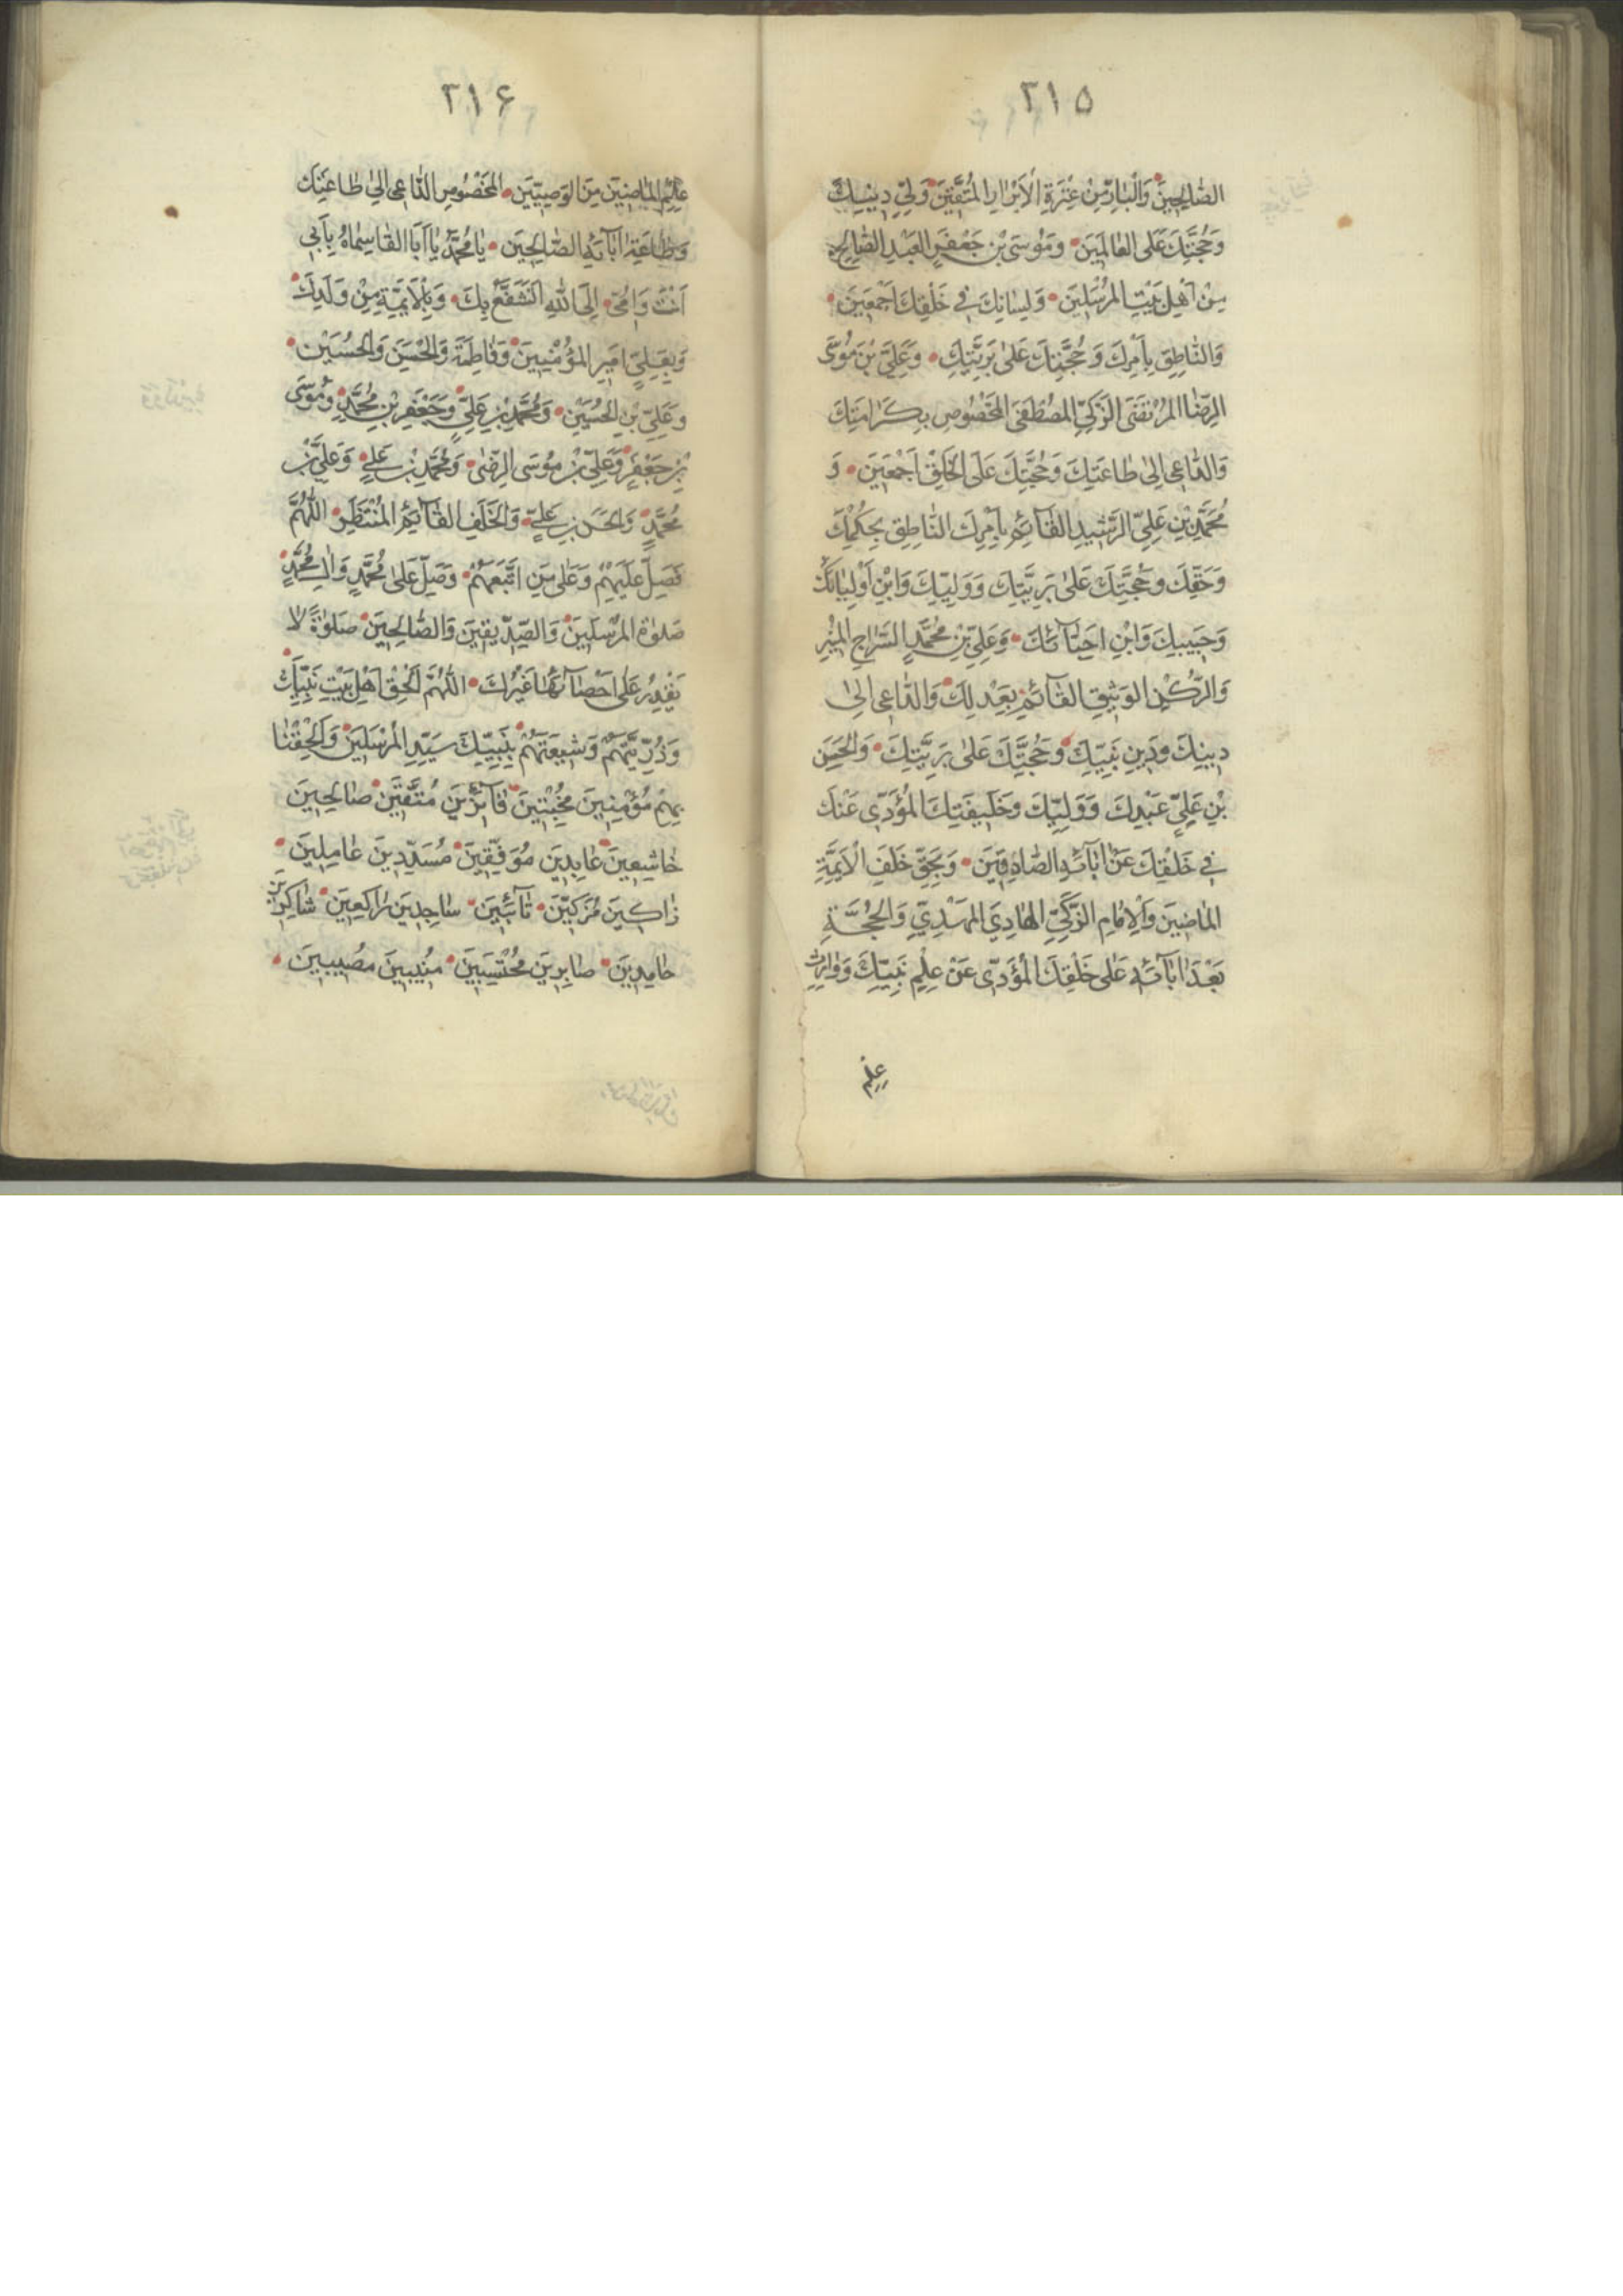 ٣١۵
الصّٰالِحِينَ وَالْبٰارِّ مِنْ عِتْرَةِ الْاَبْرٰارِ الْمُتَّقِينَ وَوَلِيِّ دِينِكَ
وَحُجَّتِكَ عَلَى الْعٰالَمِينَ وَمُوسَى بْنِ جَعْفَرٍ الْعَبْدِ الصّٰالِحِ
مِنْ اَهْلِ بَيْتِ الْمُرْسَلِينَ وَلِسٰانِكَ فِي خَلْقِكَ اَجْمَعِينَ
وَالنّٰاطِقِ بِاَمْرِكَ وَحُجَّتِكَ عَلىٰ بَرِيَّتِكَ وَعَلِيِّ بْنِ مُوسَى
الرِّضَا الْمُرْتَضَى الزَّكِيِّ الْمُصْطَفَى الْمَخْصُوصِ بِكَرٰامَتِكَ
وَالدّٰاعِى اِلىٰ طٰاعَتِكَ وَحُجَّتِكَ عَلَى الْخَلْقِ اَجْمَعِينَ وَ
مُحَمَّدِ بْنِ عَلِيٍّ الرَّشِيدِ الْقٰآئِمِ بِاَمْرِكَ النّٰاطِقِ بِحُكْمِكَ
وَحَقِّكَ وَحُجَّتِكَ عَلىٰ بَرِيَّتِكَ وَوَلِيِّكَ وَابْنِ اَوْلِيٰائِكَ
وَحَبِيبِكَ وَابْنِ اَحِبّٰآئِكَ وَعَلِيِّ بْنِ مُحَمَّدٍ السِّرٰاجِ الْمُنِيرِ
وَالرُّكْنِ الْوَثِيقِ الْقٰآئِمِ بِعَدْلِكَ وَالدّٰاعِى اِلىٰ
دِينِكَ وَدِينِ نَبِيِّكَ وَحُجَّتِكَ عَلىٰ بَرِيَّتِكَ وَالْحَسَنِ
بْنِ عَلِيٍّ عَبْدِكَ وَوَلِيِّكَ وَخَلِيفَتِكَ الْمُؤَدِّى عَنْكَ
فِي خَلْقِكَ عَنْ اٰبٰآئِهِ الصّٰادِقِينَ وَبِحَقِّ خَلَفِ الْاَئِمَّةِ
الْمٰاضِينَ وَالْاِمٰامِ الزَّكِيِّ الْهٰادِى الْمَهْدِيِّ وَالْحُجَّةِ
بَعْدَ اٰبٰآئِهِ عَلىٰ خَلْقِكَ الْمُؤَدِّى عَنْ عِلْمِ نَبِيِّكَ وَوٰارِثِ
عِلْمِ
٣١۶
عِلْمِ الْمٰاضِينَ مِنَ الْوَصِيِّينَ الْمَخْصُوصِ الدّٰاعِى اِلىٰ طٰاعَتِكَ
وَطٰاعَةِ اٰبٰآئِهِ الصّٰالِحِينَ يٰا مُحَمَّدُ يٰا اَبَا الْقٰاسِمٰاهُ بِاَبِي
اَنْتَ وَاُمِّى اِلَى اللهِ اَتَشَفَّعُ بِكَ وَبِالْاَئِمَّةِ مِنْ وَلَدِكَ
وَبِعَلِيٍّ اَمِيرِ الْمُؤْمِنِينَ وَفٰاطِمَةَ وَالْحَسَنِ وَالْحُسَيْنِ
وَعَلِيِّ بْنِ الْحُسَيْنِ وَمُحَمَّدِ بْنِ عَلِيٍّ وَجَعْفَرِ بْنِ مُحَمَّدٍ وَمُوسَى
بْنِ جَعْفَرٍ وَعَلِيِّ بْنِ مُوسَى الرِّضٰى وَمُحَمَّدِ بْنِ عَلِيٍّ وَعَلِيِّ بْنِ
مُحَمَّدٍ وَالْحَسَنِ بْنِ عَلِيٍّ وَالْخَلَفِ الْقٰآئِمِ الْمُنْتَظَرِ اللّٰهُمَّ
فَصَلِّ عَلَيْهِمْ وَعَلىٰ مَنِ اتَّبَعَهُمْ وَصَلِّ عَلىٰ مُحَمَّدٍ وَاٰلِ مُحَمَّدٍ
صَلوٰةَ الْمُرْسَلِينَ وَالصِّدِّيقِينَ وَالصّٰالِحِينَ صَلوٰةً لٰا
يَقْدِرُ عَلىٰ اِحْصٰآئِهٰا غَيْرُكَ اللّٰهُمَّ اَلْحِقْ اَهْلَ بَيْتِ نَبِيِّكَ
وَذُرِّيَّتَهُمْ وَشِيعَتَهُمْ بِنَبِيِّكَ سَيِّدِ الْمُرْسَلِينَ وَاَلْحِقْنٰا
بِهِمْ مُؤْمِنِينَ مُخْبِتِينَ فٰآئِزِينَ مُتَّقِينَ صٰالِحِينَ
خٰاشِعِينَ عٰابِدِينَ مُوَفَّقِينَ مُسَدَّدِينَ عٰامِلِينَ
زٰاكِينَ مُزَكِّينَ تٰآئِبِينَ سٰاجِدِينَ رٰاكِعِينَ شٰاكِرِينَ
حٰامِدِينَ صٰابِرِينَ مُحْتَسِبِينَ مُنِيبِينَ مُصِيبِينَ